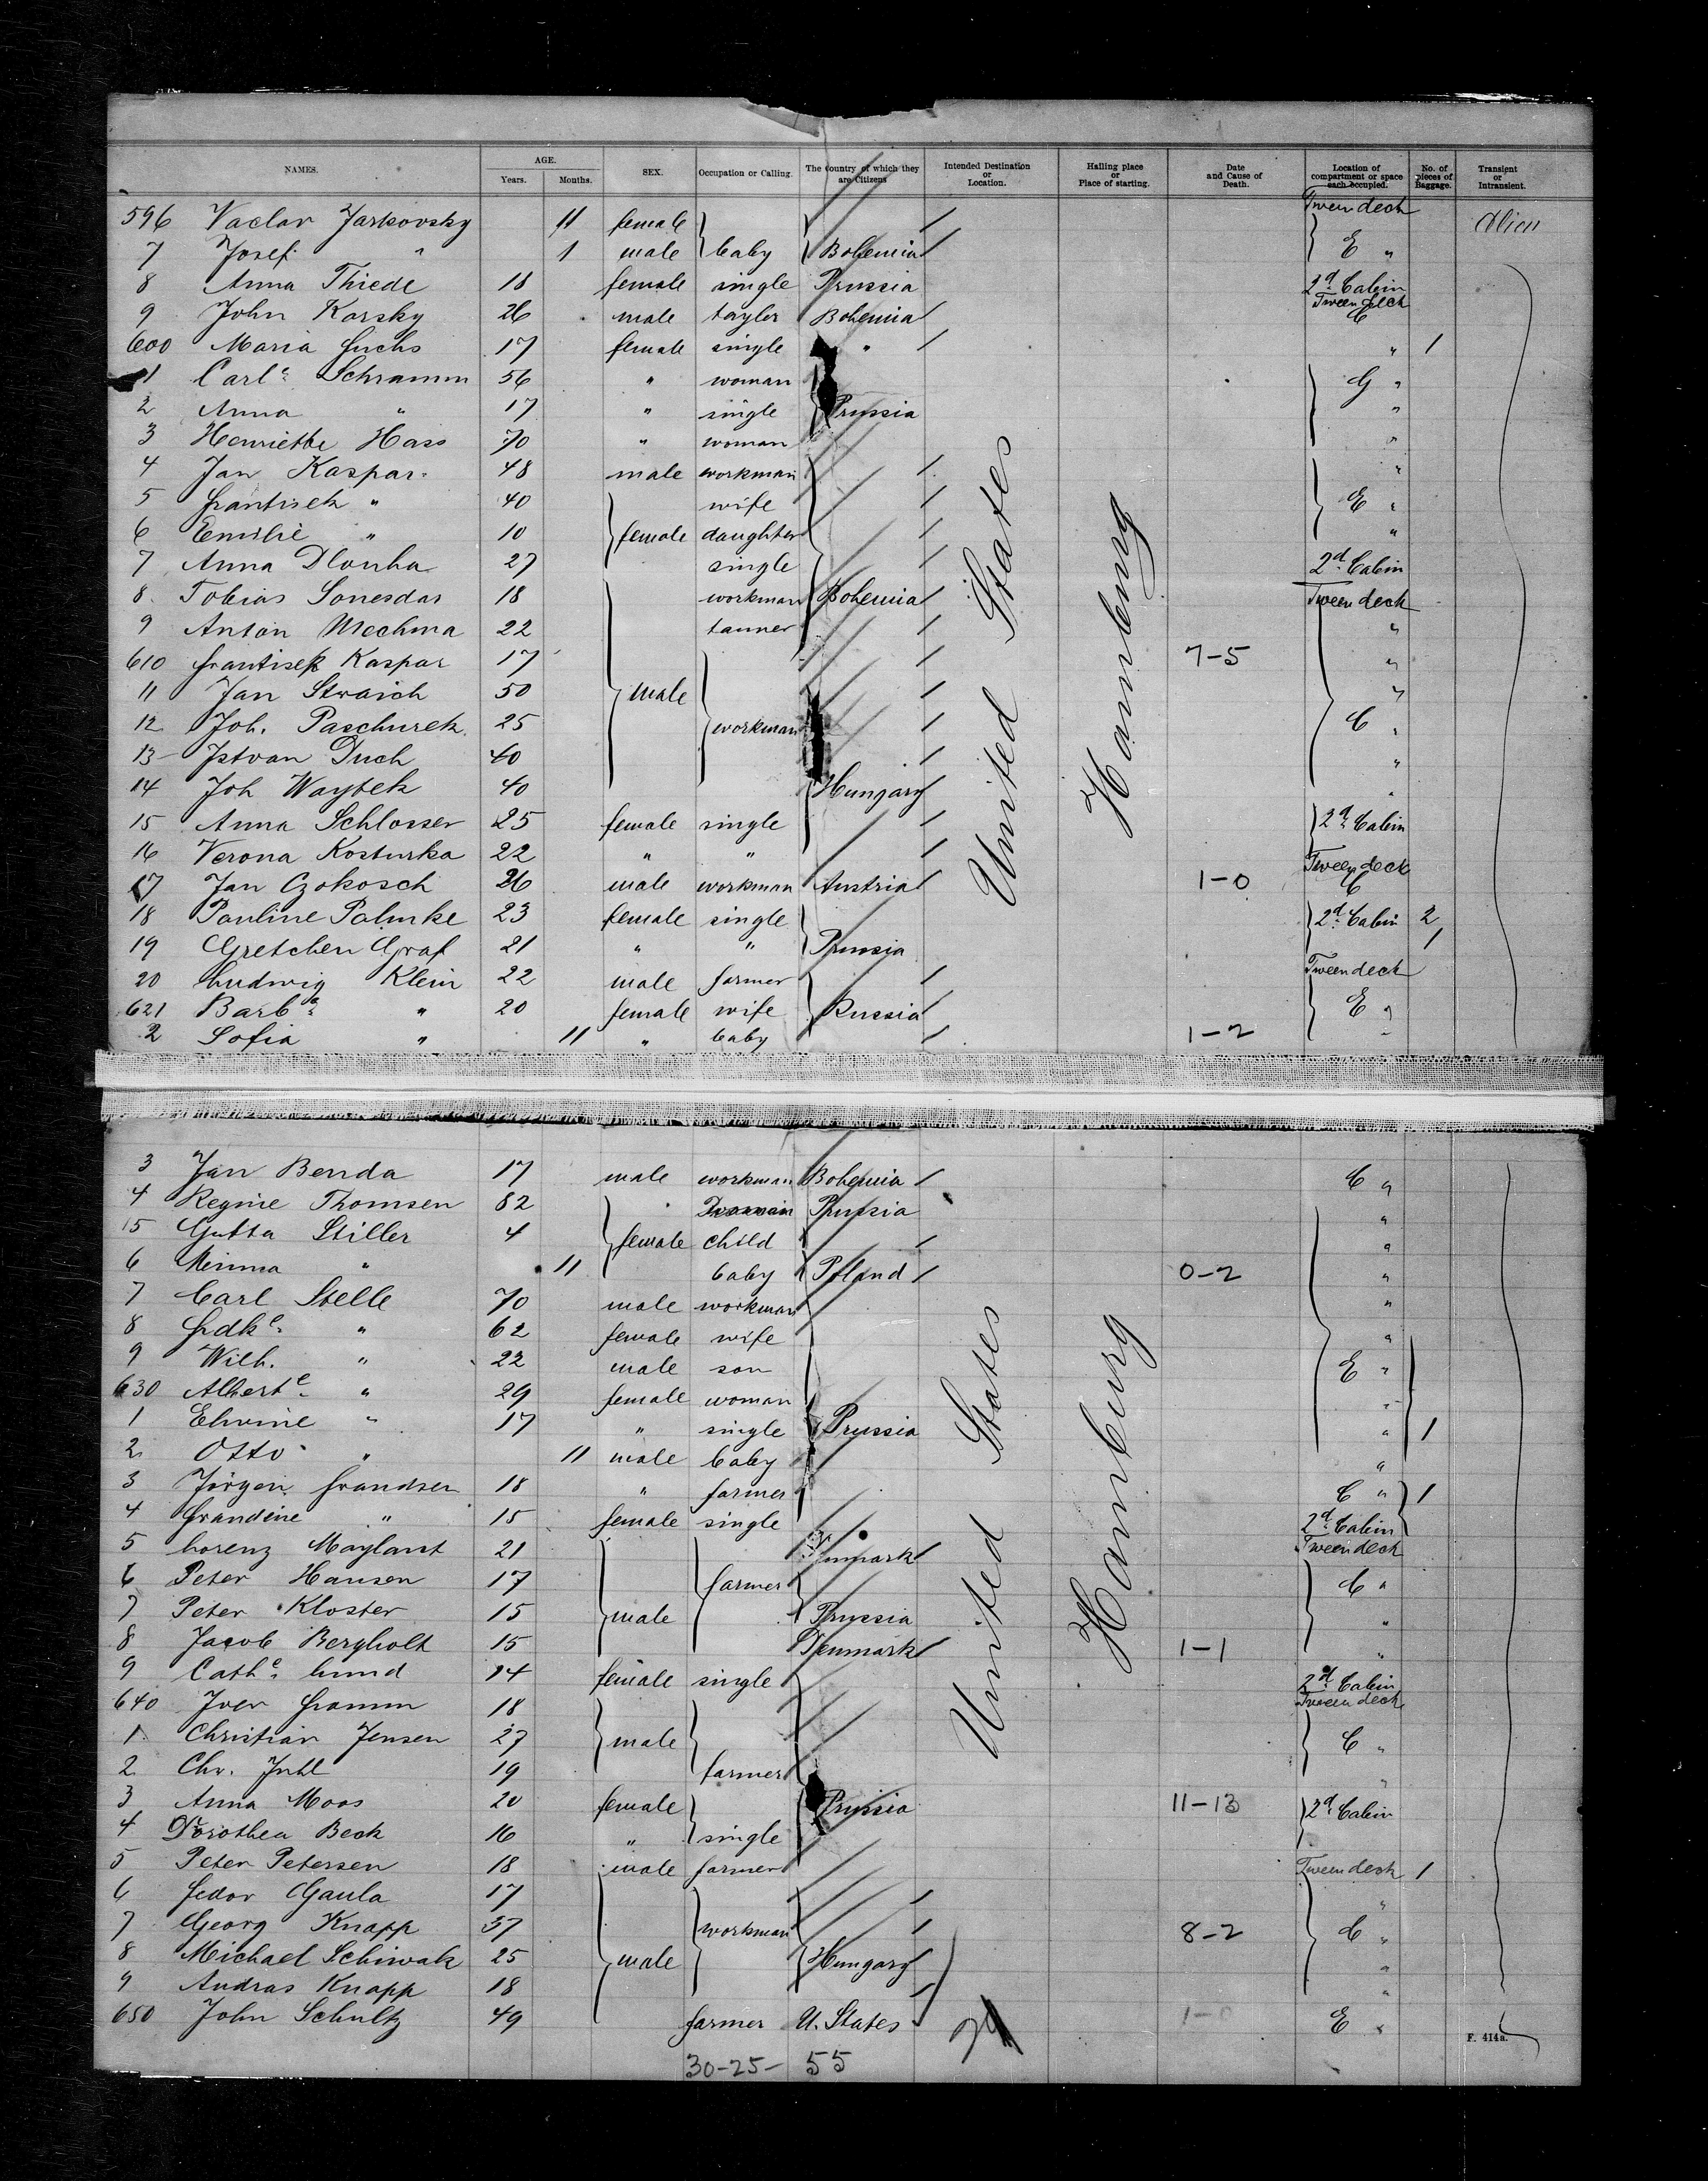 NAMES. AGE. Years. Months. SEX. Occupation or Calling. The Country of which they are Citizens Intended Destination or Location. Hailing place or Place of starting. Date and Cause of Death. Location of compartment or space each occupied. No. of pieces of Baggage. Transient or Intransient.
Tween deck
596 Vaclav Jarkovsky 11 female Alien
7 Josef " 1 male baby Bohemia E "
8 Anna Thiede 18 female single Prussia 2d Cabin
9 John Karsky 26 male taylor Bohemia Tween deck C
600 Maria Fuchs 17 female single " " 1
1 Carle Schramm 56 " woman G "
2 Anna " 17 " single Prussia "
3 Henriette Hass 70 " woman "
4 Jan Kaspar 48 male workman "
5 Frantisek " 40 wife E "
6 Emilie " 10 female daughter "
7 Anna Dlouha 27 single 2d Cabin
8 Tobias Sonesdas 18 workman Bohemia Tween deck
9 Anton Mechma 22 tanner "
610 Frantisek Kaspar 17 7-5 "
11 Jan Straich 50 male "
12 Joh. Paschurek 25 workman C "
13 Istvan Duch 40 "
14 Joh Waytek 40 Hungary "
15 Anna Schlosser 25 female single 2d Cabin
16 Verona Kosturka 22 " " Tween deck
17 Jan Czokosch 26 male workman Austria 1-0 C
18 Pauline Palmke 23 female single 2d Cabin 2
19 Gretchen Graf 21 " " Prussia 1
20 Ludwig Klein 22 male farmer Tween deck
621 Barba " 20 female wife Russia E "
2 Sofia " 11 " baby 1-2 "
3 Jan Benda 17 male workman Bohemia C "
4 Regine Thomsen 82 woman Prussia "
15 Gutta Stiller 4 female child "
6 Minna " 11 baby Poland 0-2 "
7 Carl Stelle 70 male workman "
8 Frdke " 62 female wife "
9 Wilh. " 22 male son E "
630 Alberte " 29 female woman "
1 Elwine " 17 " single Prussia " 1
2 Otto " 11 male baby "
3 Jörgen Frandsen 18 " farmer C " 1
4 Frandine " 15 female single 2d Cabin
5 Lorenz Maylant 21 Denmark Tween deck
6 Peter Hansen 17 farmer C "
7 Peter Kloster 15 male Prussia "
8 Jacob Bergholt 15 Denmark 1-1 "
9 Cathe Lund 14 female single 2d Cabin
640 Iver Framm 18 Tween deck
1 Christian Jensen 27 male C "
2 Chr. Juhl 19 farmer "
3 Anna Moos 20 female Prussia 11-13 2d Cabin
4 Dorothea Beck 16 " single
5 Peter Petersen 18 male farmer Tween deck 1
6 Fedor Gaula 17 "
7 Georg Knapp 37 workman 8-2 C "
8 Michael Schiwak 25 male Hungary "
9 Andras Knapp 18 "
650 John Schultz 49 farmer U. States 1-0 E "
United States
Hamburg
United States
Hamburg
F. 414a.
30-25- 55